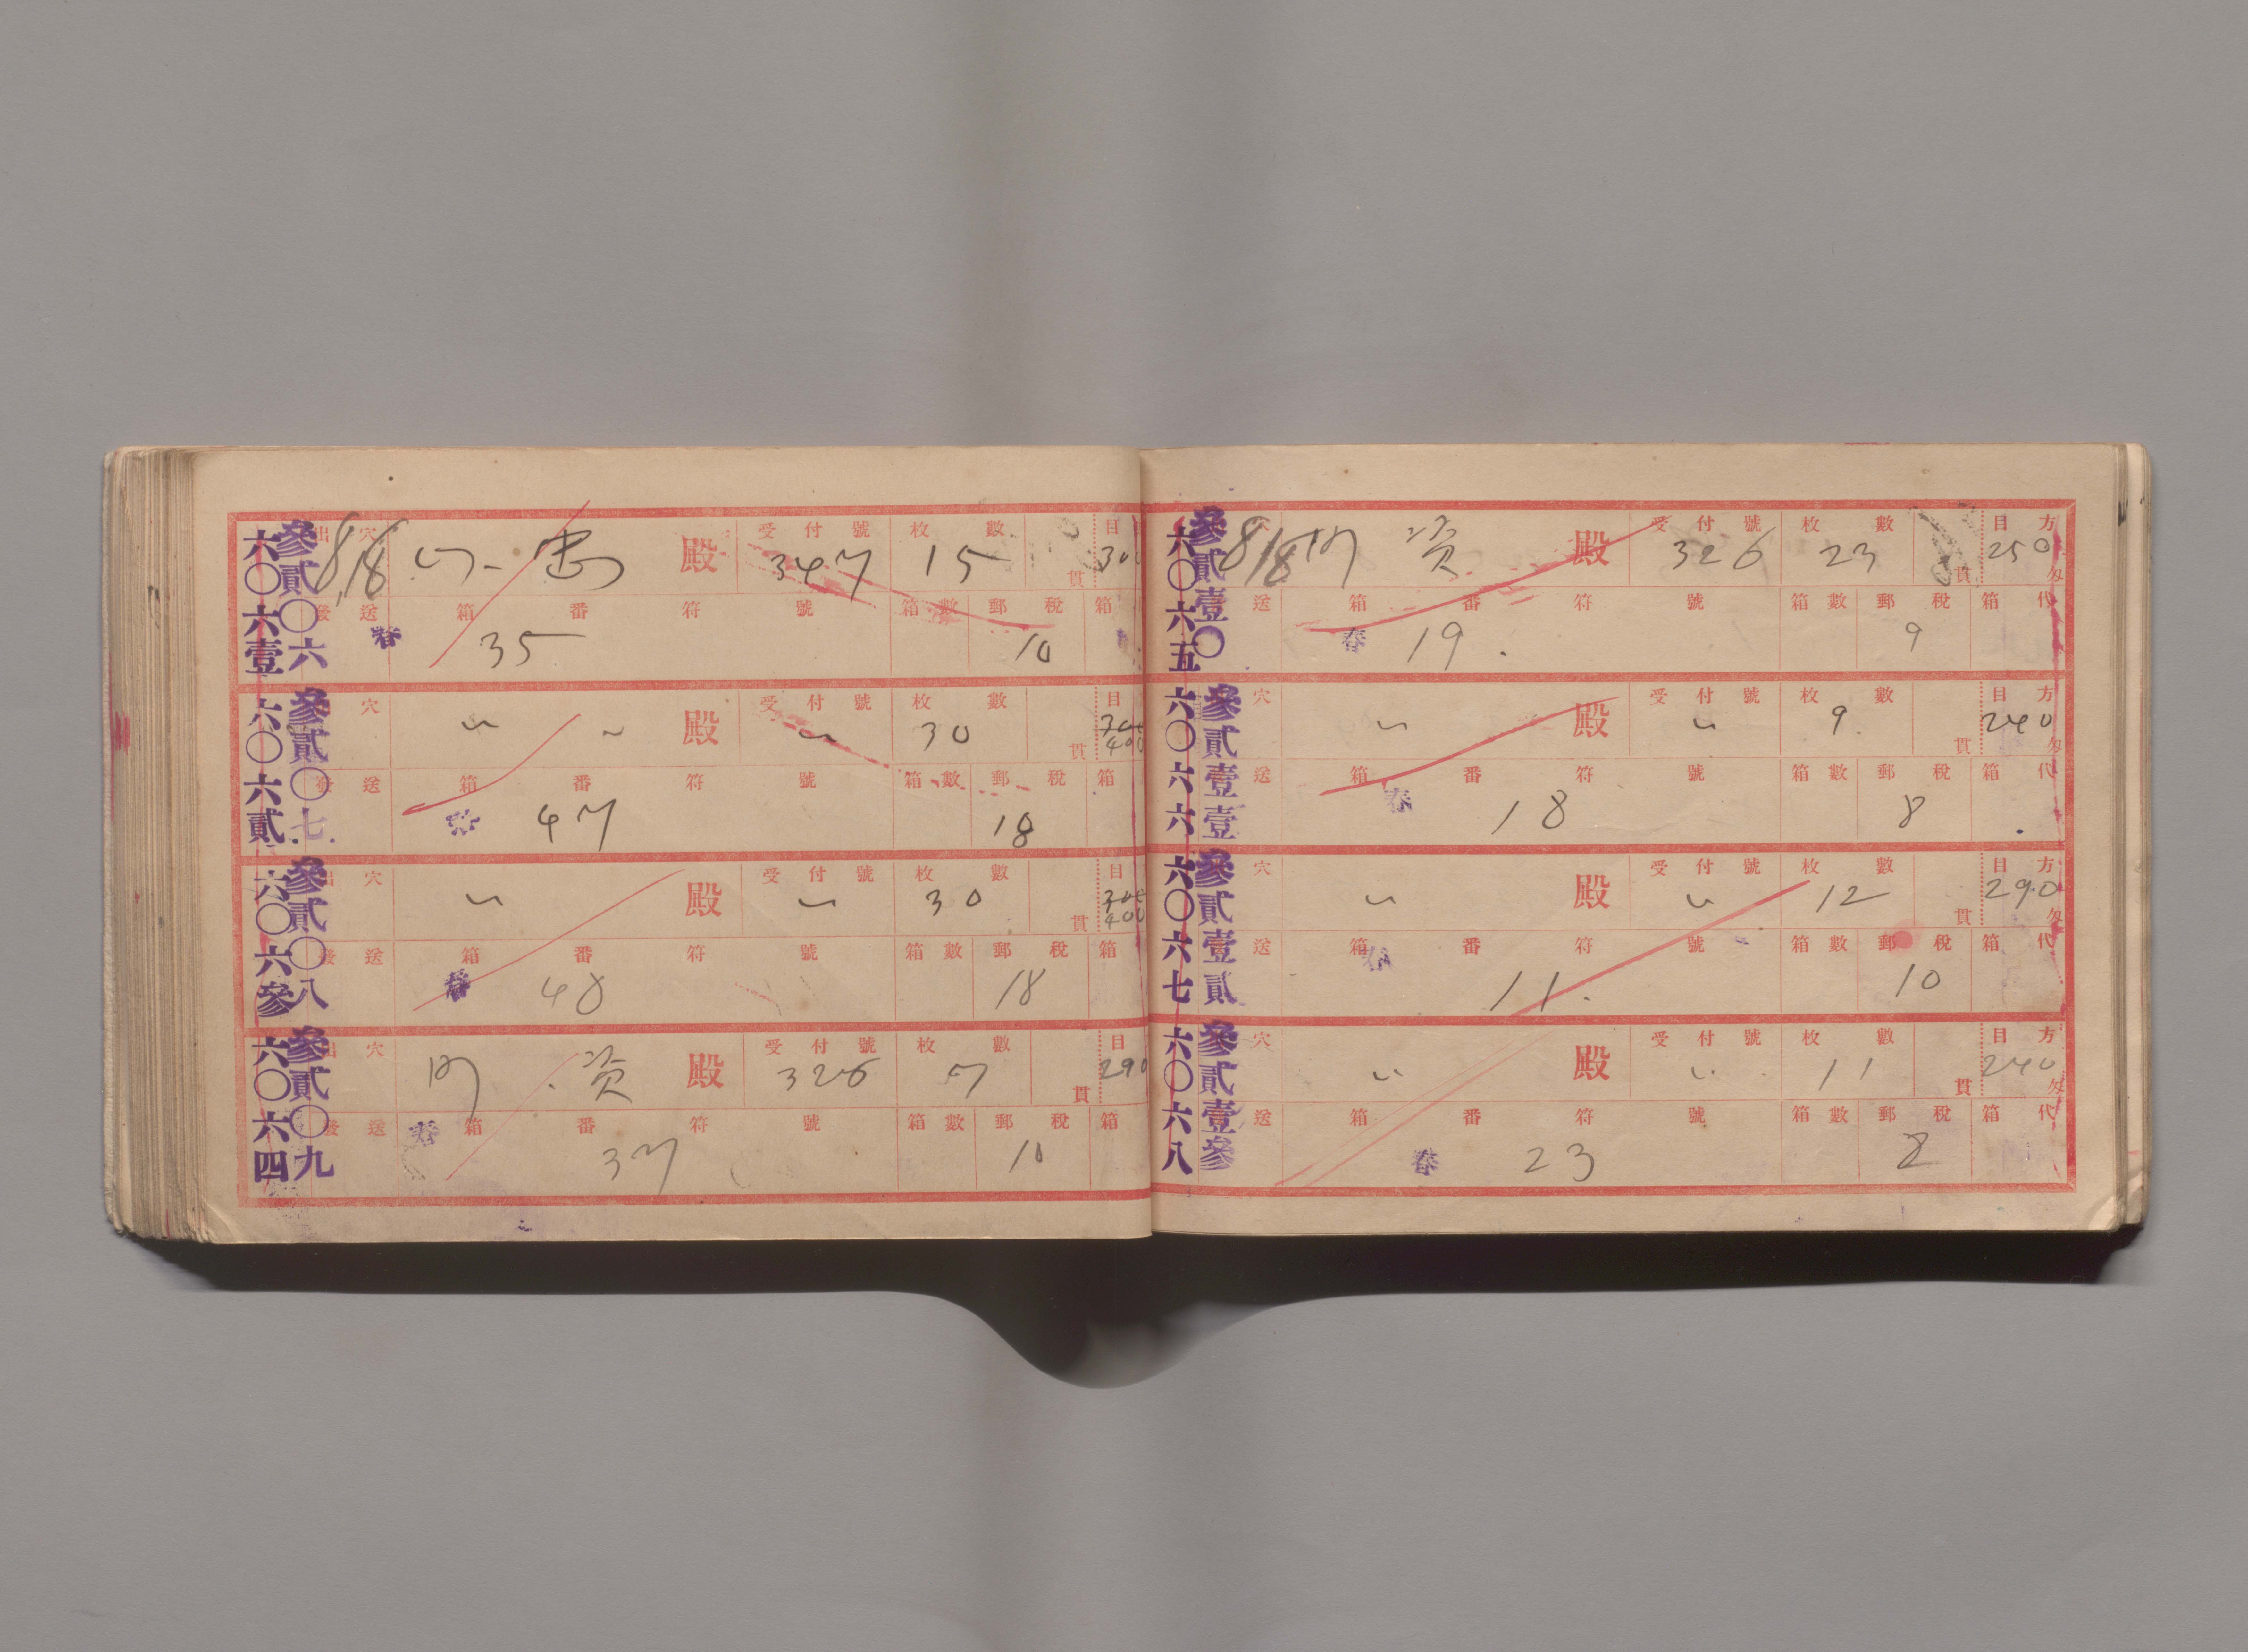 六〇六壹 參貳〇六 出穴 8/18 殿 受付號 347 枚數 15 貫 目 300
發送 春 箱番符號 35 箱數 郵稅 10 箱
六〇六貳 參貳〇七 穴 〃 〃 殿 受付號 〃 枚數 30 貫 目 400
發送 箱番符號 47 箱數 郵稅 18 箱
六〇六參 參貳〇八 出穴 〃 殿 受付號 〃 枚數 30 貫 目 400
發送 春 箱番符號 48 箱數 郵稅 18 箱
六〇六四 參貳〇九 出穴 資 殿 受付號 326 枚數 7 貫 目 290
發送 春 箱番符號 37 箱數 郵稅 10 箱
六〇六五 參貳壹〇 穴 8/18 資 殿 受付號 326 枚數 23 貫 目方 250 匁
送 春 箱番符號 19 箱數 郵稅 9 箱代
六〇六六 參貳壹壹 穴 〃 殿 受付號 〃 枚數 9 貫 目方 240 匁
送 春 箱番符號 18 箱數 郵稅 8 箱代
六〇六七 參貳壹貳 穴 〃 殿 受付號 〃 枚數 12 貫 目方 290 匁
送 春 箱番符號 11 箱數 郵稅 10 箱代
六〇六八 參貳壹參 穴 〃 殿 受付號 〃 枚數 11 貫 目方 240 匁
送 春 箱番符號 23 箱數 郵稅 8 箱代